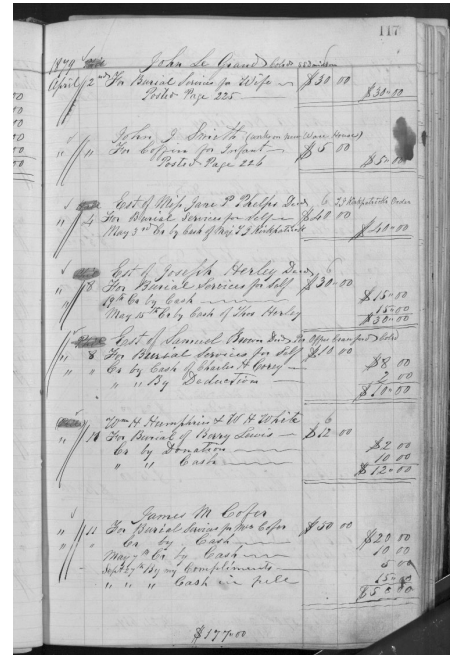 117
1879 John Le Grand
April 2nd For Burial Services for Wife $30 00
Posted Page 225 $30-00
John J. Smith
" " For Coffin for Infant $5 00
Posted Page 226 $5-00
Est of Miss Jane P. Phelps Decd 6 T J Kirkpatricks Order
" 4 For Burial Services for Self $40 00
May 3rd Cr by Cash of T J Kirkpatrick $40-00
Est of Joseph Horley Decd 6
" 8 For Burial Services for Self $30-00
19th Cr by Cash $15-00
May 15th Cr by Cash of Thos Horley 15-00
$30-00
Est of Samuel Brown Decd
" 8 For Burial Services for Self $10 00
" " Cr by Cash of Charles H $8 00
" " By Deduction 2 00
$10-00
Wm H. Humphries & W H White 6
" 11 For Burial of Berry Lewis $12 00
Cr by Donation $2 00
" " Cash 10 00
$12-00
James M. Cofer
" 11 For Burial Services for Mrs Cofer $50 00
" " Cr by Cash $20 00
May 7th Cr by Cash 10 00
Sept 27th By my Compliments 5 00
" " " Cash in full 15-00
$50 00
$177-00